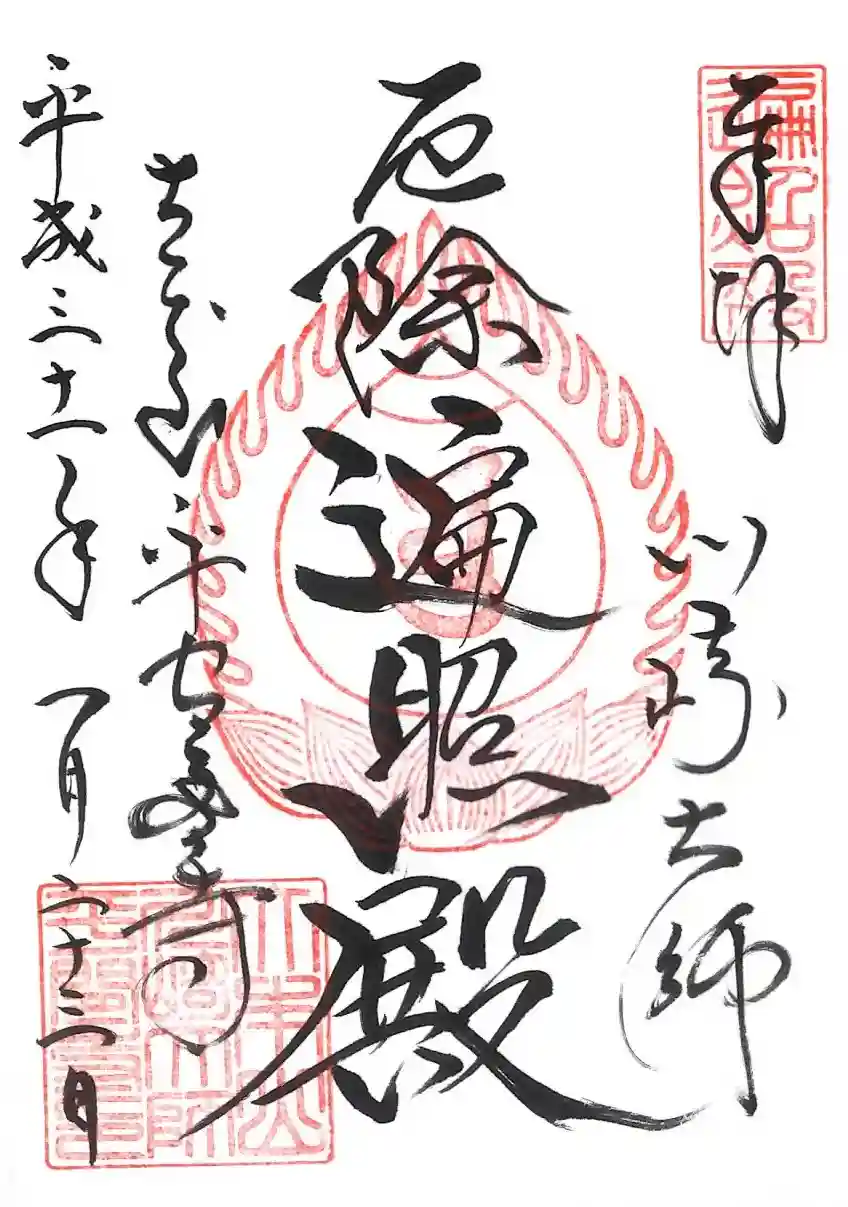 奉拝
川崎大師
厄除遍照殿
大本山
平間寺
平成三十一年 一月二十三日
遍照殿